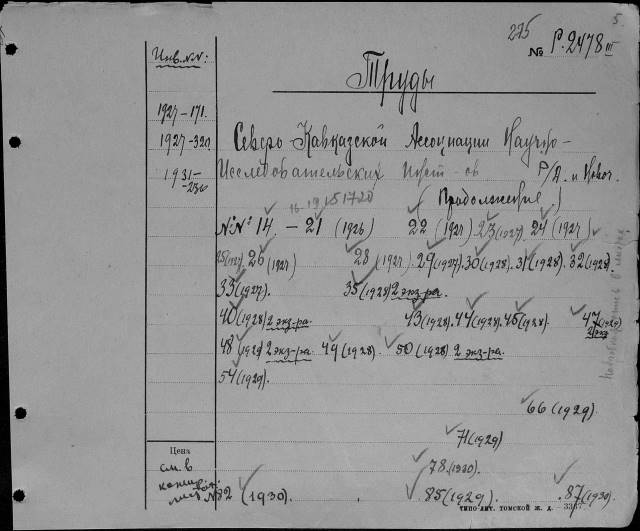 5.
275
№ Р.2478 III
Инв.№№:
Труды
1927-171.
1927-321
1931-236
Северо-Кавказской Ассоциации Научно-
Исследовательских Инст-ов Р/Д. и Новоч.
(Продолжение.)
16-19 15 17 20
№№ 14. - 21 (1926) 22 (1927) 23 (1927) 24 (1927)
25(1927) 26 (1927) 28 (1927) 29 (1927). 30 (1928). 31 (1928). 32 (1928).
33 (1927). 35 (1928) 2 экз-ра.
40 (1928) 2 экз-ра. 43 (1928). 44 (1928). 45 (1928). 47 (1929) 2 экз
48 (1929) 2 экз-ра. 49 (1928). 50 (1928) 2 экз-ра.
54 (1929).
66 (1929).
71 (1929)
78 (1930).
Цена
см. в
№ 82 (1930). 85 (1929). 87 (1930).
ТИПО-ЛИТ. ТОМСКОЙ Ж. Д.